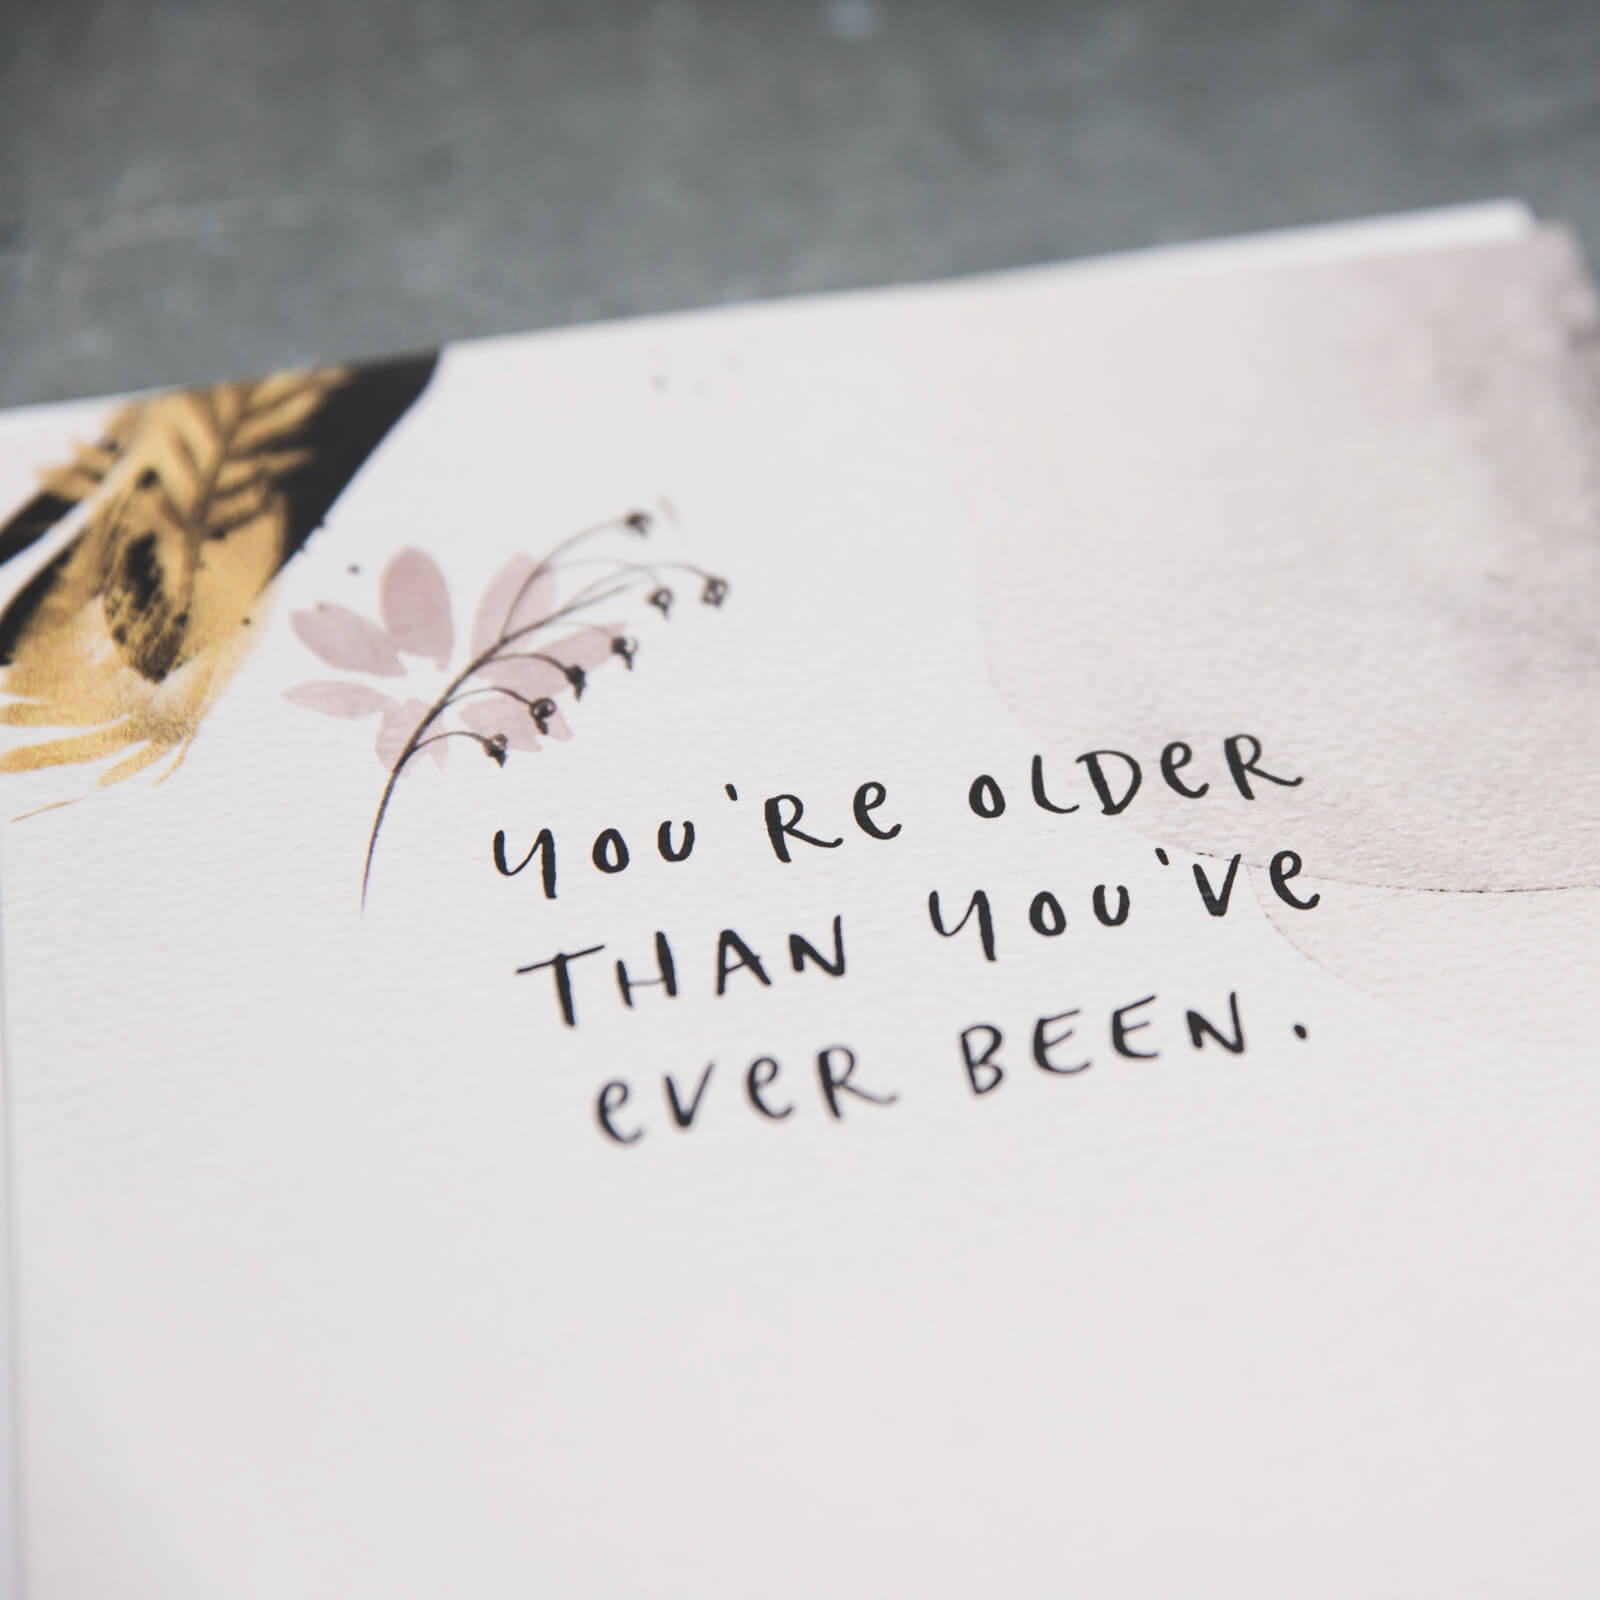 YOU'RE OLDER
THAN YOU'VE
EVER BEEN.